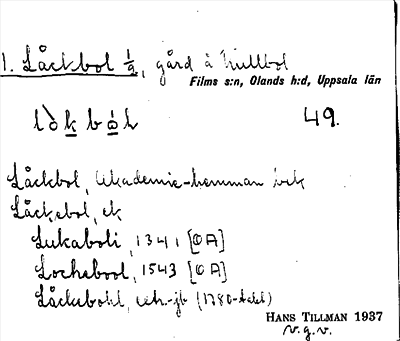 1. Låckbol ½, gård å hullbol
Films s:n, Olands h:d, Uppsala län
lòkbòl 49.
Låckbol, Akademie-hemman
Låckebol, ek
Lukaboli, 1341 [OA]
Lochebool, 1543 [OA]
Låckebohl, (1780-talet)
HANS TILLMAN 1937
v.g.v.